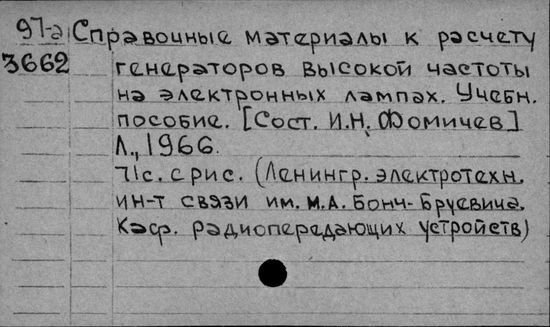 97-а Справочные материалы к расчету
3662 генераторов высокой частоты
на электронных лампах. Учебн.
пособие. [Сост. И.Н. Фомичев]
Л., 1966.
71с. с рис. (Ленингр. электротехн.
ин-т связи им. М.А. Бонч-Бруевича.
Каф. радиопередающих устройств)